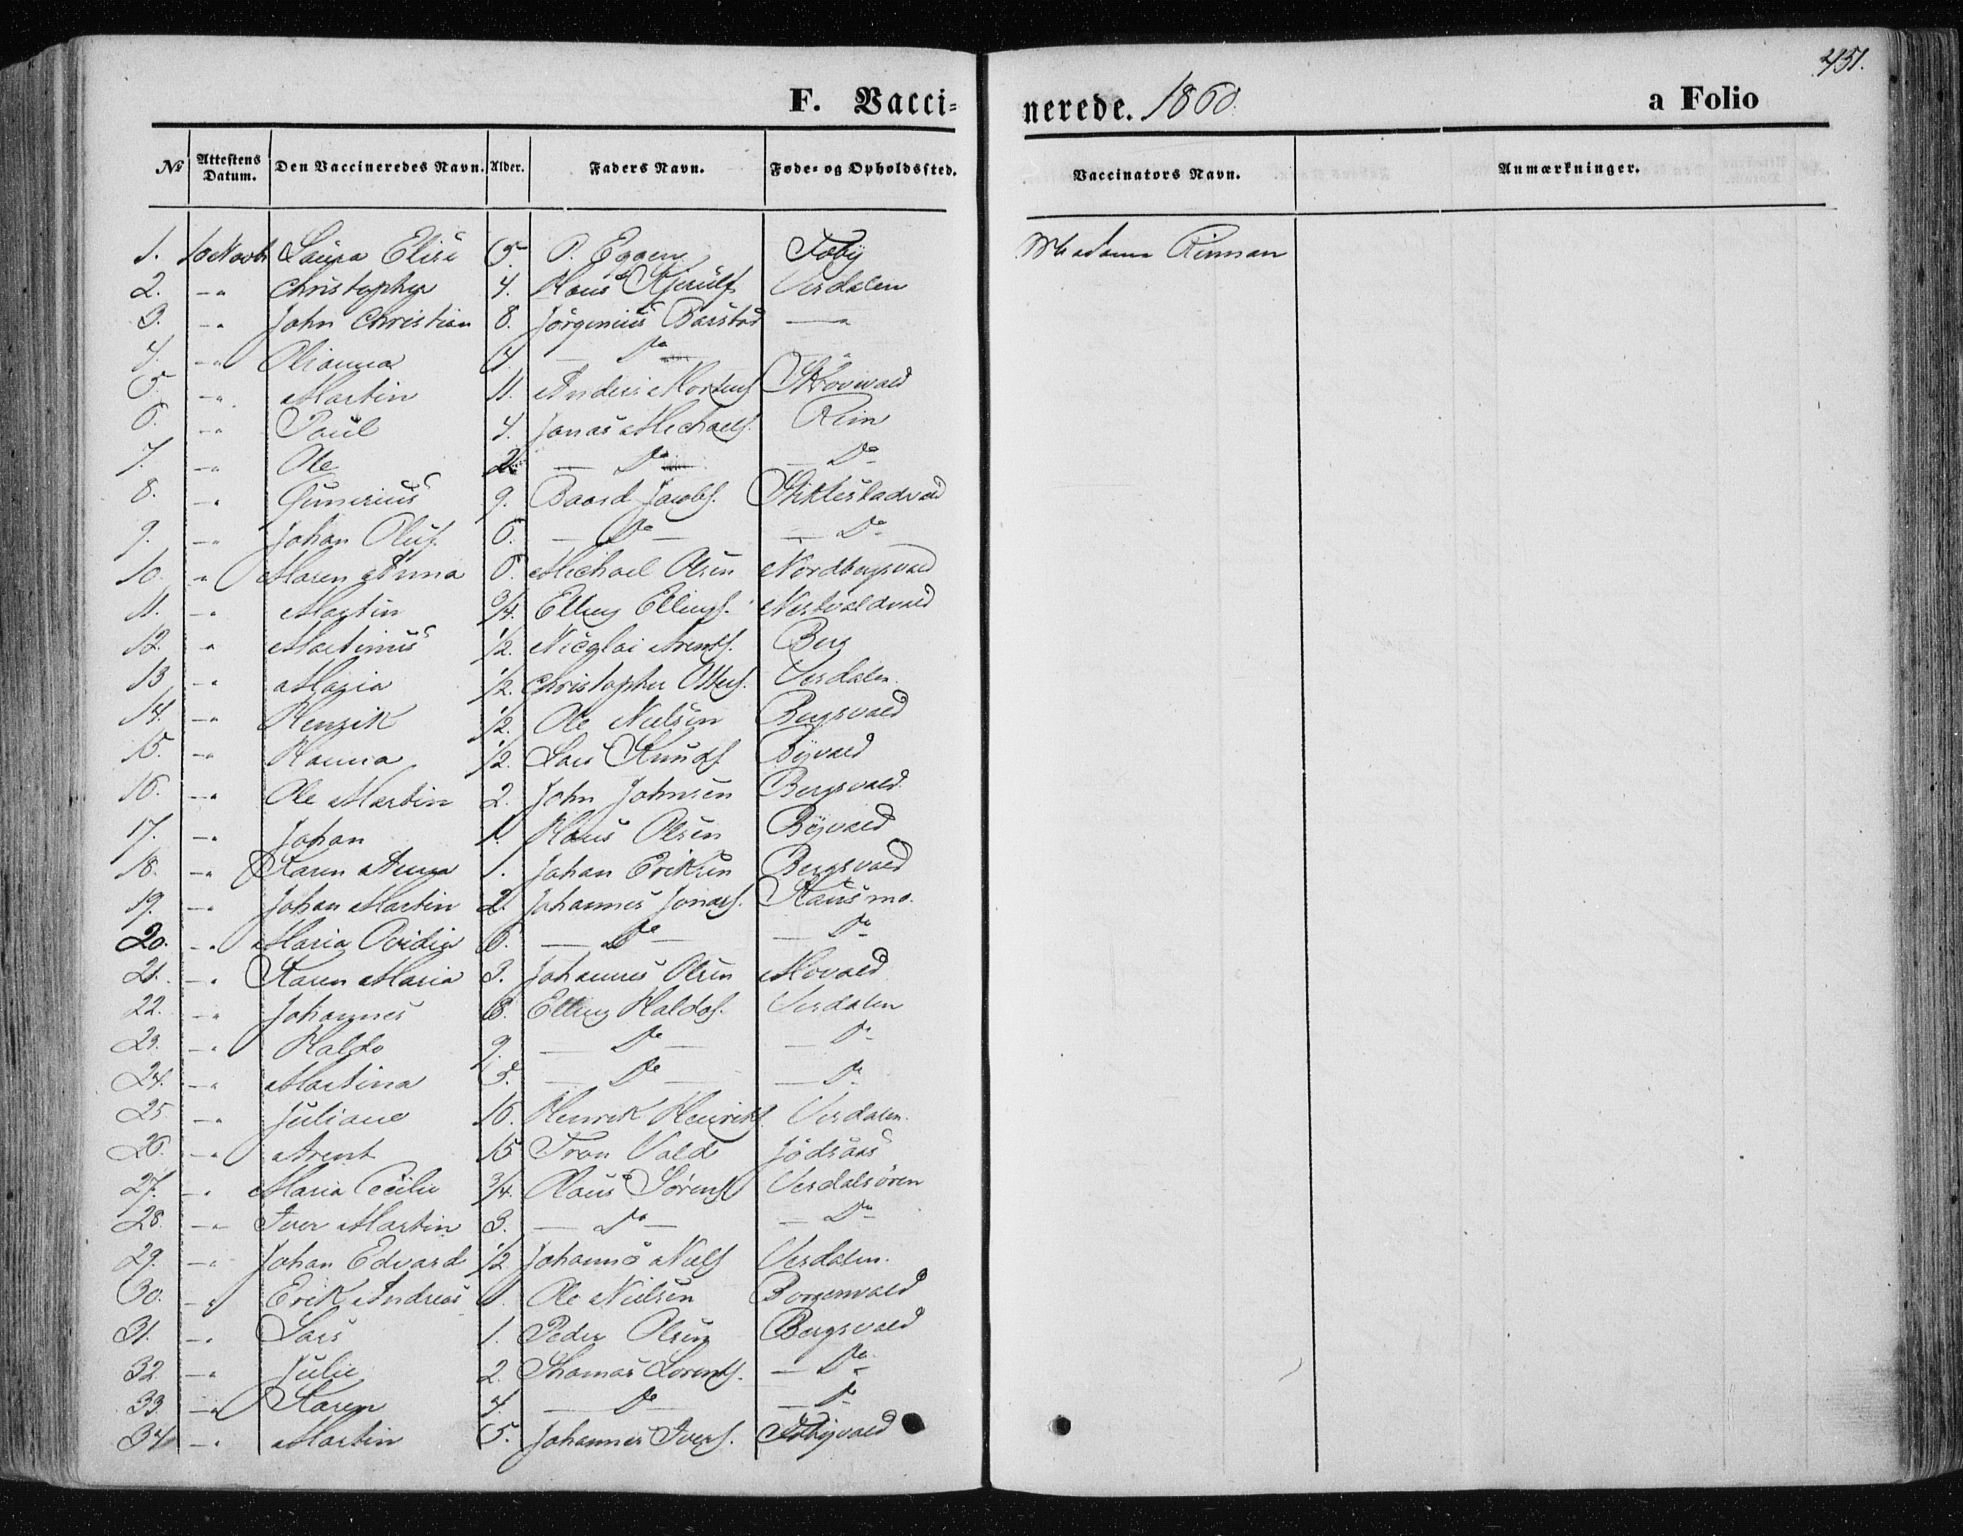 451.
F. Vacci=
nerede. 1860.
a Folio
No Attestens Datum. Den Vaccineredes Navn. Alder. Faders Navn. Føde= og Opholdssted. Vaccinators Navn. Anmærkninger.
1. 10 Novbr Laura Elise 5. P. Eggen Foby Madame Rinnan
2. -" Christopher 4. Hans Kjerulf Verdalen
3. -" John Christian 8. Jørgenius Barstad —"
4. -" Olianna — Do —
5. -" Martin 11. Anders Mortens.
6. -" Paul 4. Jonas Michaels. Rein
7. -" Ole 2. — Do — — Do -
8. -" Gunerius 9. Baard Jacobs. Stiklestadvald
9. -" Johan Oluf 6. — Do — — Do -
10. -" Maren Anna 6. Michael Olsen Nordbergsvald
11. -" Martin 3/4. Elling Ellings. Nestvoldvald
12. -" Martinus 1/2. Nicolai Arents. Berg
13 -" Maria 1/2. Christopher Ottes. Verdalen.
14. -" Henrik 1/2. Ole Nielsen Bergsvald
15. -" Hanna 1/2. Lars Knuds. Byvald
16. -" Ole Martin 2. John Johnsen Bergsvald.
17. -" Johan 1. Hans Olsen Byvald
18. -" Karen Anna 1. Johan Eriksen Bergsvald
19. -" Johan Martin 2. Johannes Jonas. Hausmo.
20. -" Maria Ovidia 6. — Do — — Do -
21. -" Karen Maria 3. Johannes Olsen Movald
22. -" Johannes Elling Haldos. Verdalen
23. -" Haldo 9. — Do — — Do -
24. -" Martina 5. — Do — — Do
25 -" Juliane 16. Henrik Henriks. Verdalen.
26. -" Arent 15 Tron Vald Jødsaas
27. -" Maria Cecilie 3/4. Olaus Sørens. Verdalsøren
28. -" Iver Martin 3. — Do — — Do -
29. -" Johan Edvard 1/2 Johannes Niels. Verdalen.
30. -" Erik Andreas 1. Ole Nielsen Borgenvald
31. -" Lars 1. Peder Olsen Bergsvald
32 -" Julie 2. Thomas Lorents. — Do -
33. -" Karen 4. — Do — — Do
34 -" Martin 5. Johannes Ivers. Fobyvald